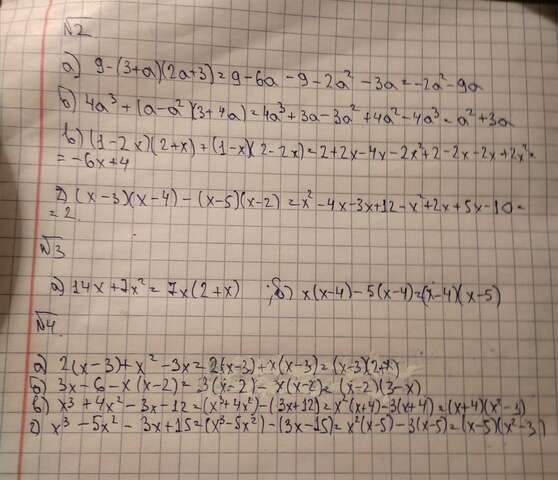 №2
а) 9-(3+a)(2a+3)=9-6a-9-2a²-3a=-2a²-9a
б) 4a³+(a-a²)(3+4a)=4a³+3a-3a²+4a²-4a³=a²+3a
в) (1-2x)(2+x)+(1-x)(2-2x)=2+2x-4x-2x²+2-2x-2x+2x²=
=-6x+4
г) (x-3)(x-4)-(x-5)(x-2)=x²-4x-3x+12-x²+2x+5x-10=
=2
№3
а) 14x+7x²=7x(2+x) ; б) x(x-4)-5(x-4)=(x-4)(x-5)
№4.
а) 2(x-3)+x²-3x=2(x-3)+x(x-3)=(x-3)(2+x)
б) 3x-6-x(x-2)=3(x-2)-x(x-2)=(x-2)(3-x)
в) x³+4x²-3x-12=(x³+4x²)-(3x+12)=x²(x+4)-3(x+4)=(x+4)(x²-3)
г) x³-5x²-3x+15=(x³-5x²)-(3x-15)=x²(x-5)-3(x-5)=(x-5)(x²-3)